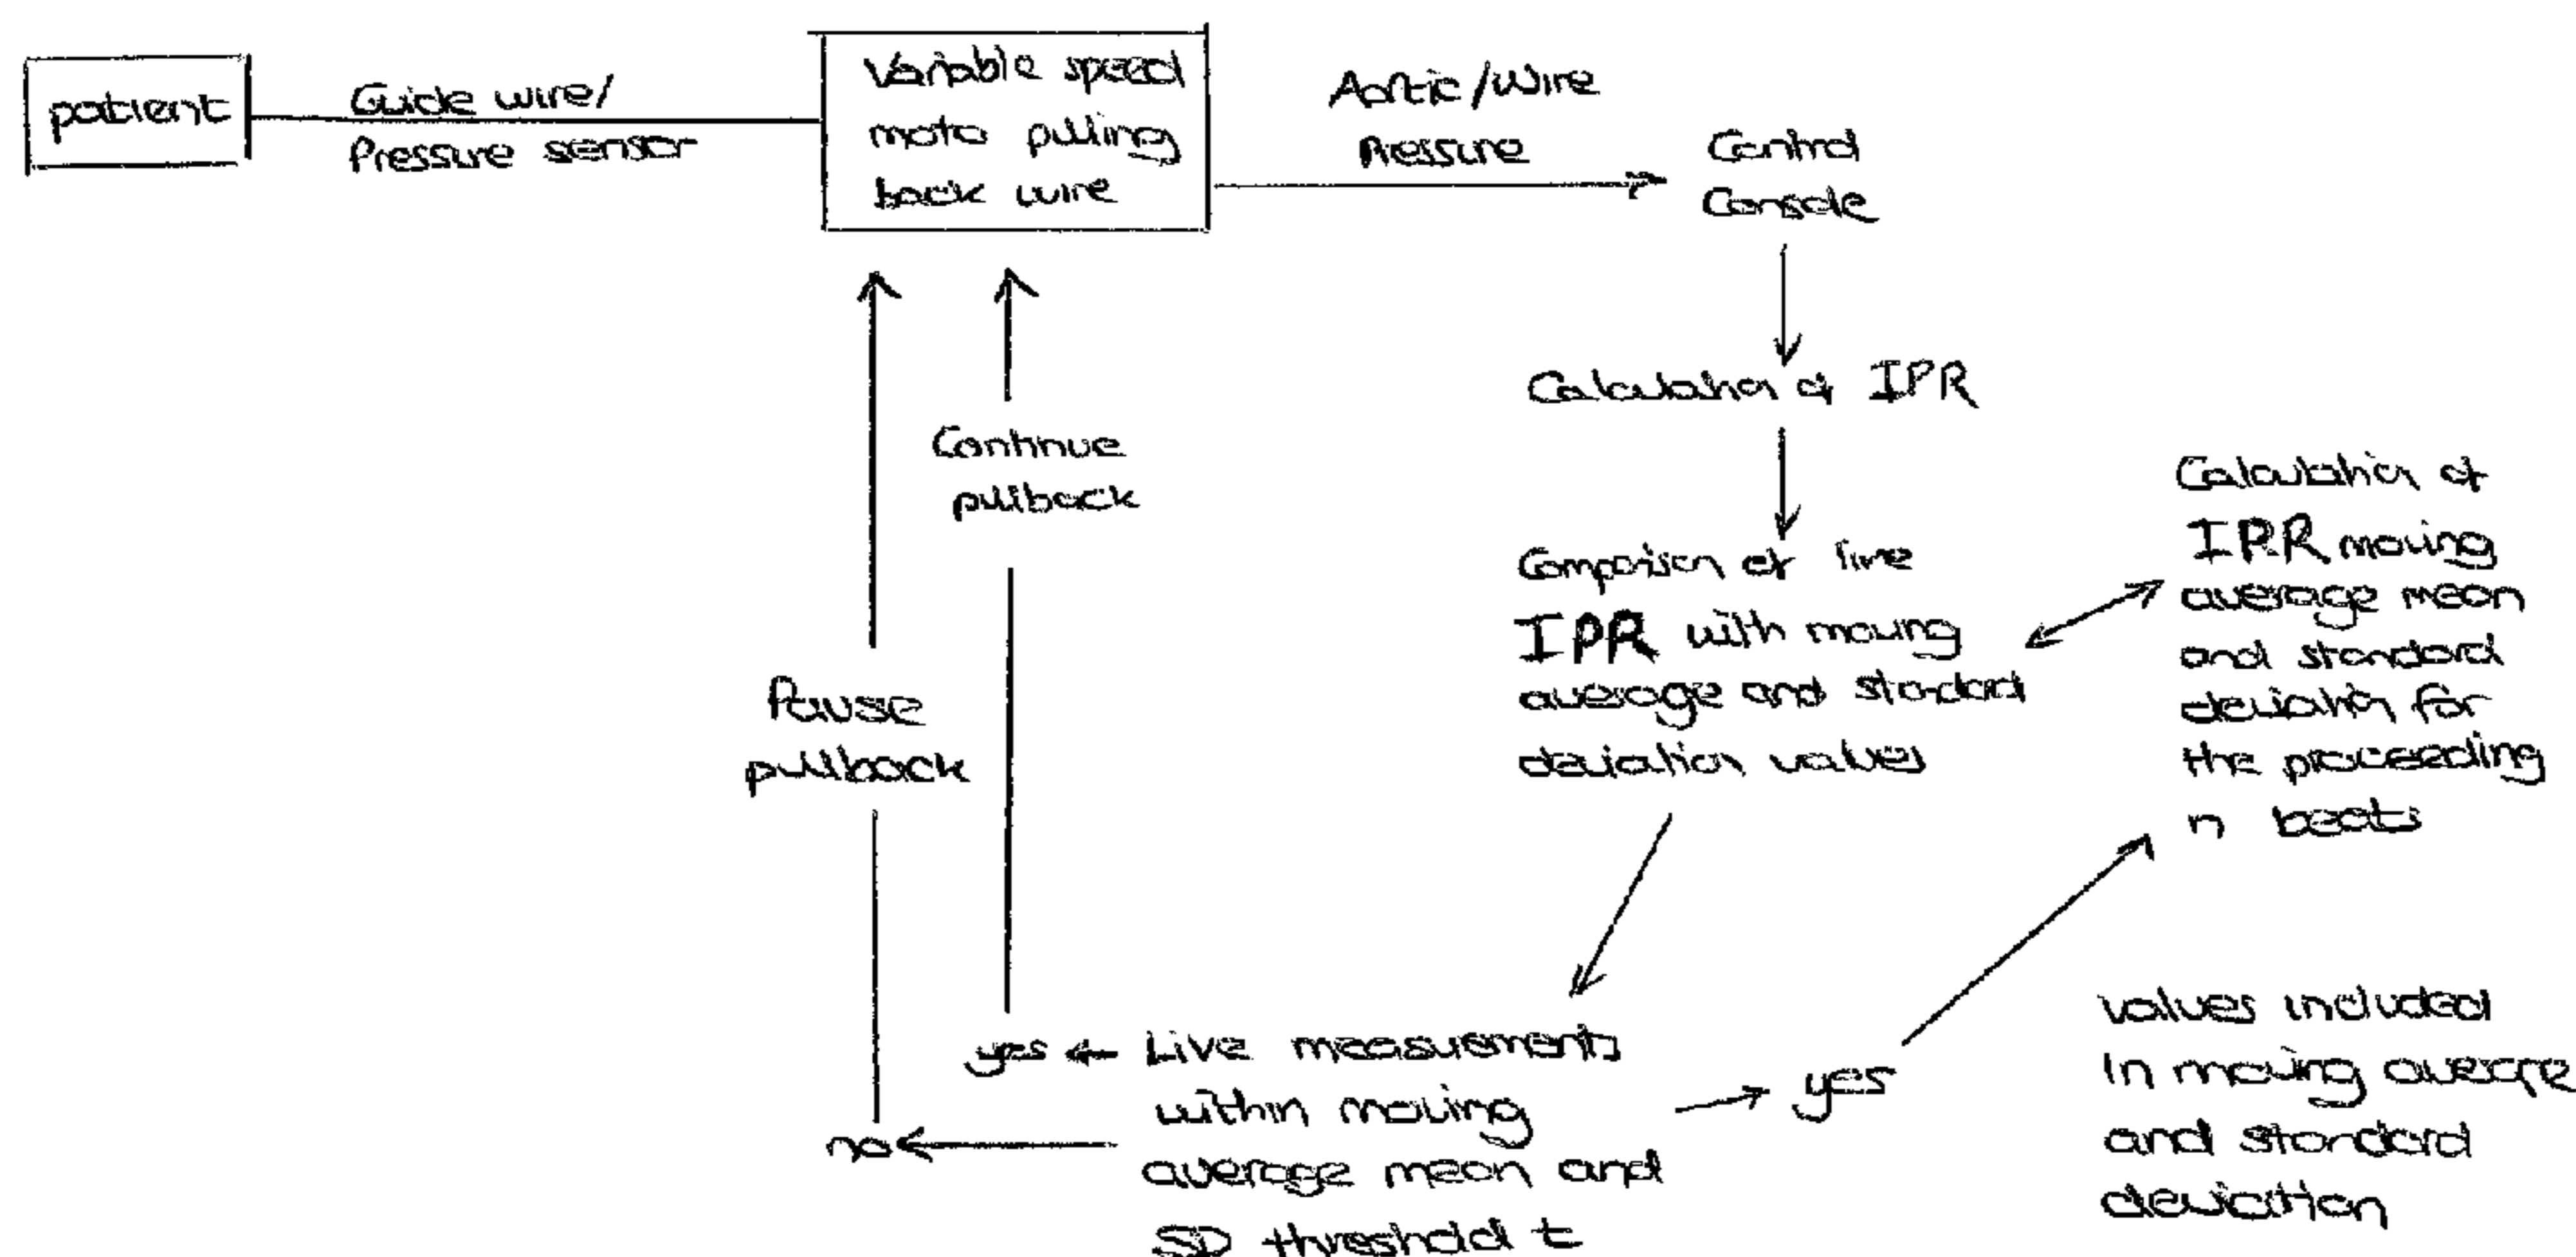 patient
Guide wire/
Pressure sensor
Variable speed
moto pulling
back wire
Aortic/Wire
Pressure
Control
Console
Calculation of IPR
Comparison of live
IPR with moving
average and standard
deviation values
Calculation of
IPR moving
average mean
and standard
deviation for
the proceeding
n beats
Continue
pullback
Pause
pullback
yes
Live measurments
within moving
average mean and
SD threshold t
no
yes
values included
In moving average
and standard
deviation